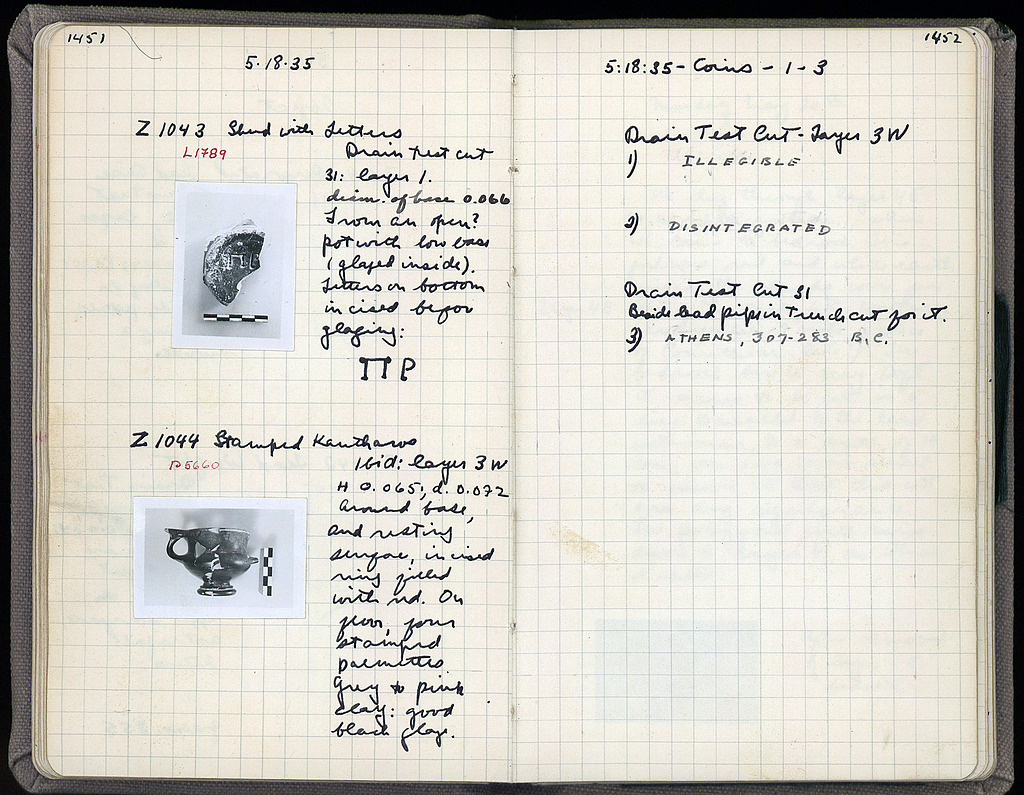 1451
5·18·35
Z 1043 Sherd with Letters
L1789
Drain test cut
31: layer 1.
diam. of base 0.066
From an open?
pot with low base
(glazed inside).
Letters on bottom
incised before
glazing:
ΠΡ
Z 1044 Stamped Kantharos
P5660
Ibid: layer 3 W
H 0.065; d. 0.072
Around base,
and resting
surface, incised
ring filled
with red. On
floor, four
stamped
palmettes.
Grey to pink
clay: good
black glaze.
1452
5:18:35 - Coins - 1 - 3
Drain Test Cut - Layer 3 W
1) ILLEGIBLE
2) DISINTEGRATED
Drain Test Cut 31
Beside lead pipe in trench cut for it.
3) ATHENS, 307-283 B.C.